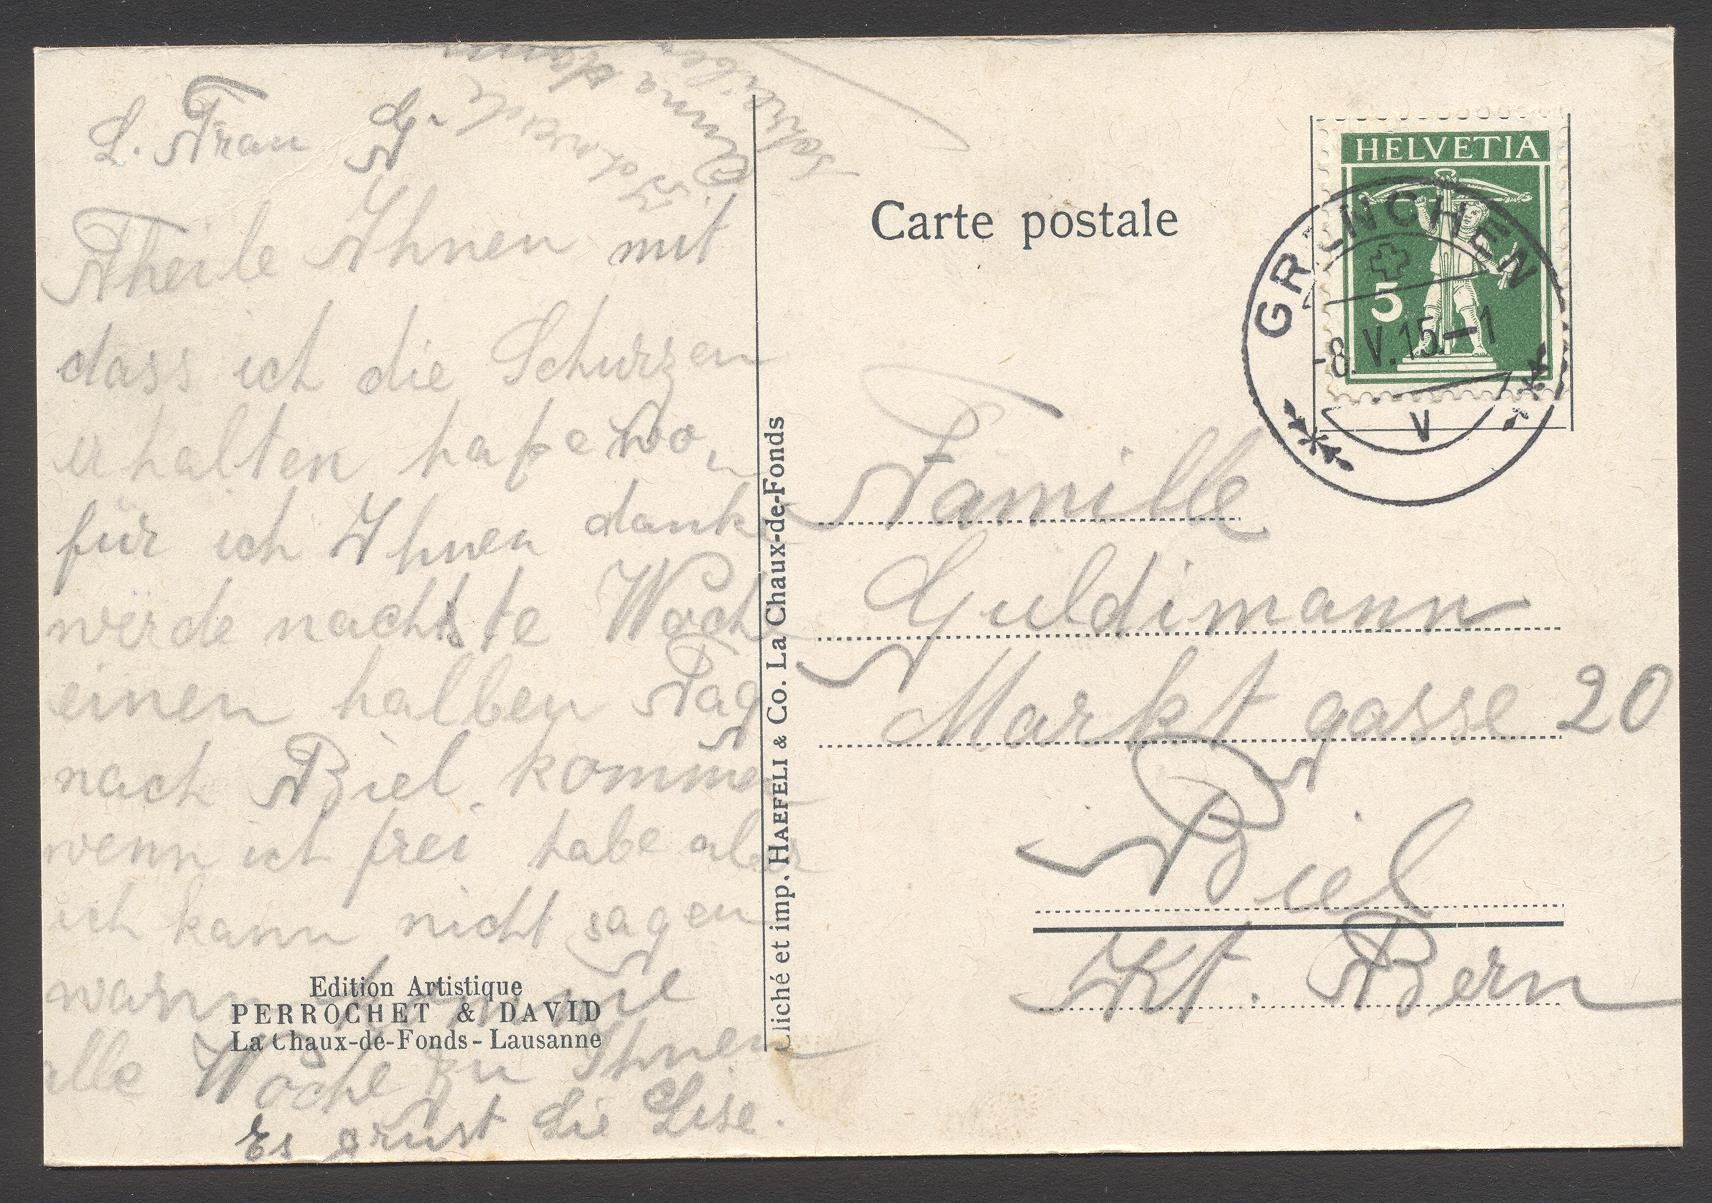 L. Frau G.
Theile Ihnen mit
dass ich die Schurzen
erhalten habe wo
für ich Ihnen danke
werde nachste Woche
einen halben Tag
nach Biel kommen
wenn ich frei habe aber
ich kann nicht sagen
wann komme
alle Woche zu Ihnen
Es grust Sie Lise.
Edition Artistique
PERROCHET & DAVID
La Chaux-de-Fonds - Lausanne
Cliché et imp. HAEFELI & Co. La Chaux-de-Fonds
Carte postale
HELVETIA
5
GRENCHEN
-8.V.15.-1
V
Familie
Guldimann
Markt gasse 20
Biel
Kt. Bern